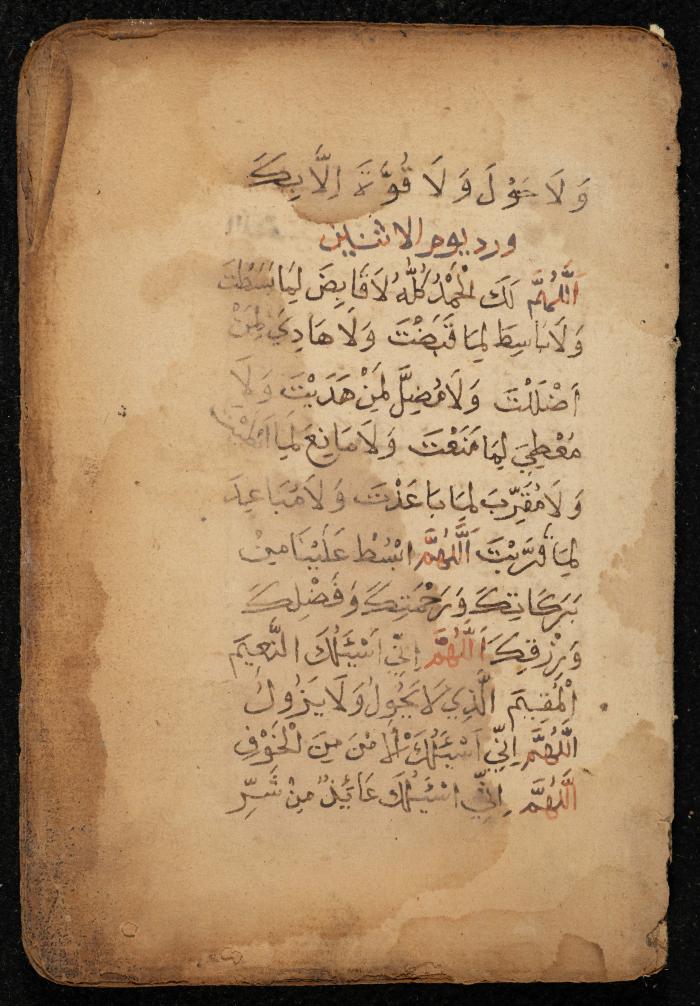 وَلَا حَوْلَ وَلَا قُوَّةَ اِلَّا بِكَ
ورد يوم الاثنين
اَللّٰهُمَّ لَكَ الْحَمْدُ كُلُّهُ لَا قَابِضَ لِمَا بَسَطْتَ
وَلَا بَاسِطَ لِمَا قَبَضْتَ وَلَا هَادِيَ لِمَنْ
اَضْلَلْتَ وَلَا مُضِلَّ لِمَنْ هَدَيْتَ وَلَا
مُعْطِيَ لِمَا مَنَعْتَ وَلَا مَانِعَ لِمَا اَعْطَيْتَ
وَلَا مُقَرِّبَ لِمَا بَاعَدْتَ وَلَا مُبَاعِدَ
لِمَا قَرَّبْتَ اَللّٰهُمَّ ابْسُطْ عَلَيْنَا مِنْ
بَرَكَاتِكَ وَرَحْمَتِكَ وَفَضْلِكَ
وَرِزْقِكَ اَللّٰهُمَّ اِنِّي اَسْئَلُكَ النَّعِيمَ
الْمُقِيمَ الَّذِي لَا يَحُولُ وَلَا يَزُولُ
اَللّٰهُمَّ اِنِّي اَسْئَلُكَ الْاَمْنَ مِنَ الْخَوْفِ
اَللّٰهُمَّ اِنِّي اسْئَلُكَ عَائِذٌ مِنْ شَرِّ